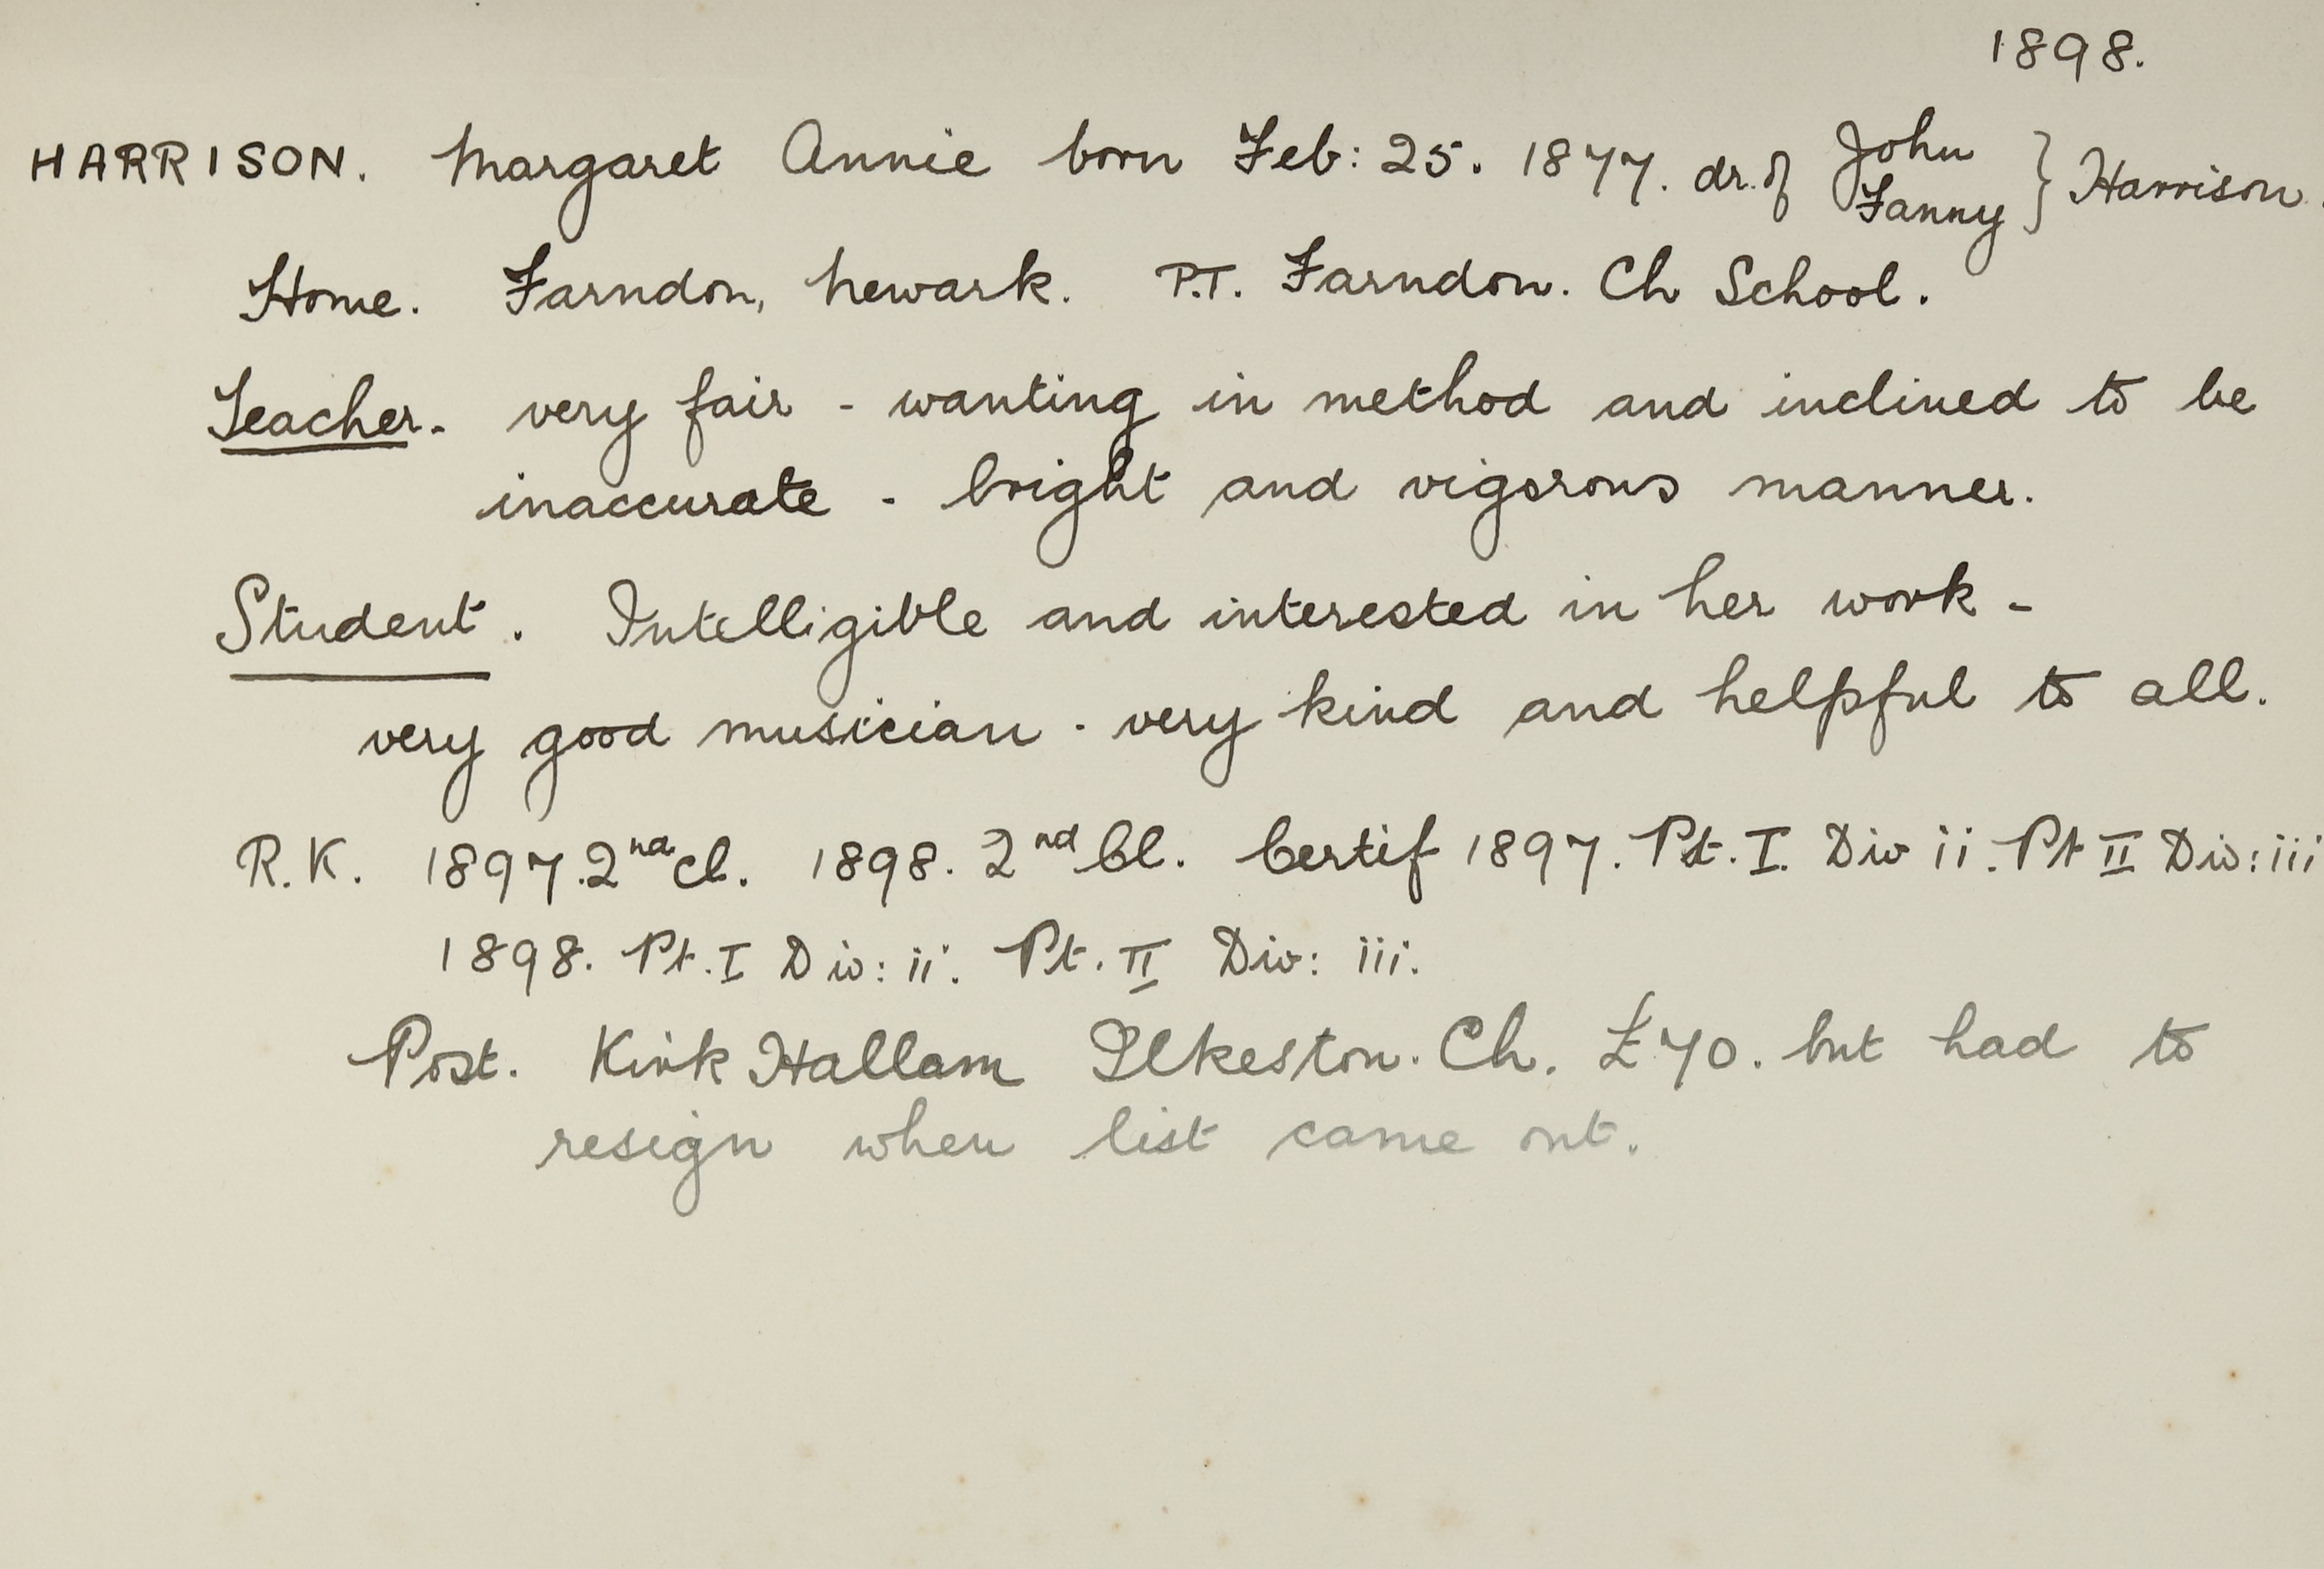 1898.
HARRISON. Margaret Annie born Feb: 25. 1877. dr. of John Fanny } Harrison.
Home. Farndon, Newark. P.T. Farndon. Ch School.
Teacher. very fair - wanting in method and inclined to be
inaccurate - bright and vigorous manner.
Student. Intelligible and interested in her work -
very good musician - very kind and helpful to all.
R.K. 1897. 2nd Cl. 1898. 2nd Cl. Certif 1897. Pt. I. Div ii. Pt II Div: iii
1898. Pt. I Div: ii. Pt. II Div: iii.
Post. Kirk Hallam Ilkeston. Ch. £70. but had to
resign when list came out.